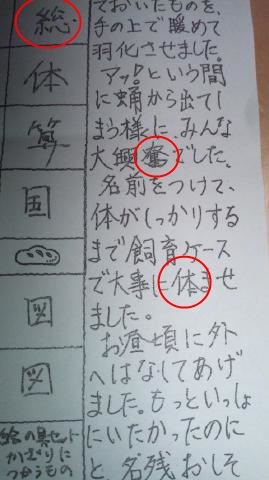 総
体
算
国
図
図
絵の具セット
かざりに
つかうもの
ておいたものを、
手の上で暖めて
羽化させました。
アッ!という間
に蛹から出てし
まう様に、みんな
大興奮でした。
名前をつけて、
体がしっかりする
まで飼育ケース
で大事に体ませ
ました。
お昼頃に外
へはなしてあげ
ました。もっといっしょ
にいたかったのに
と、名残おしそ